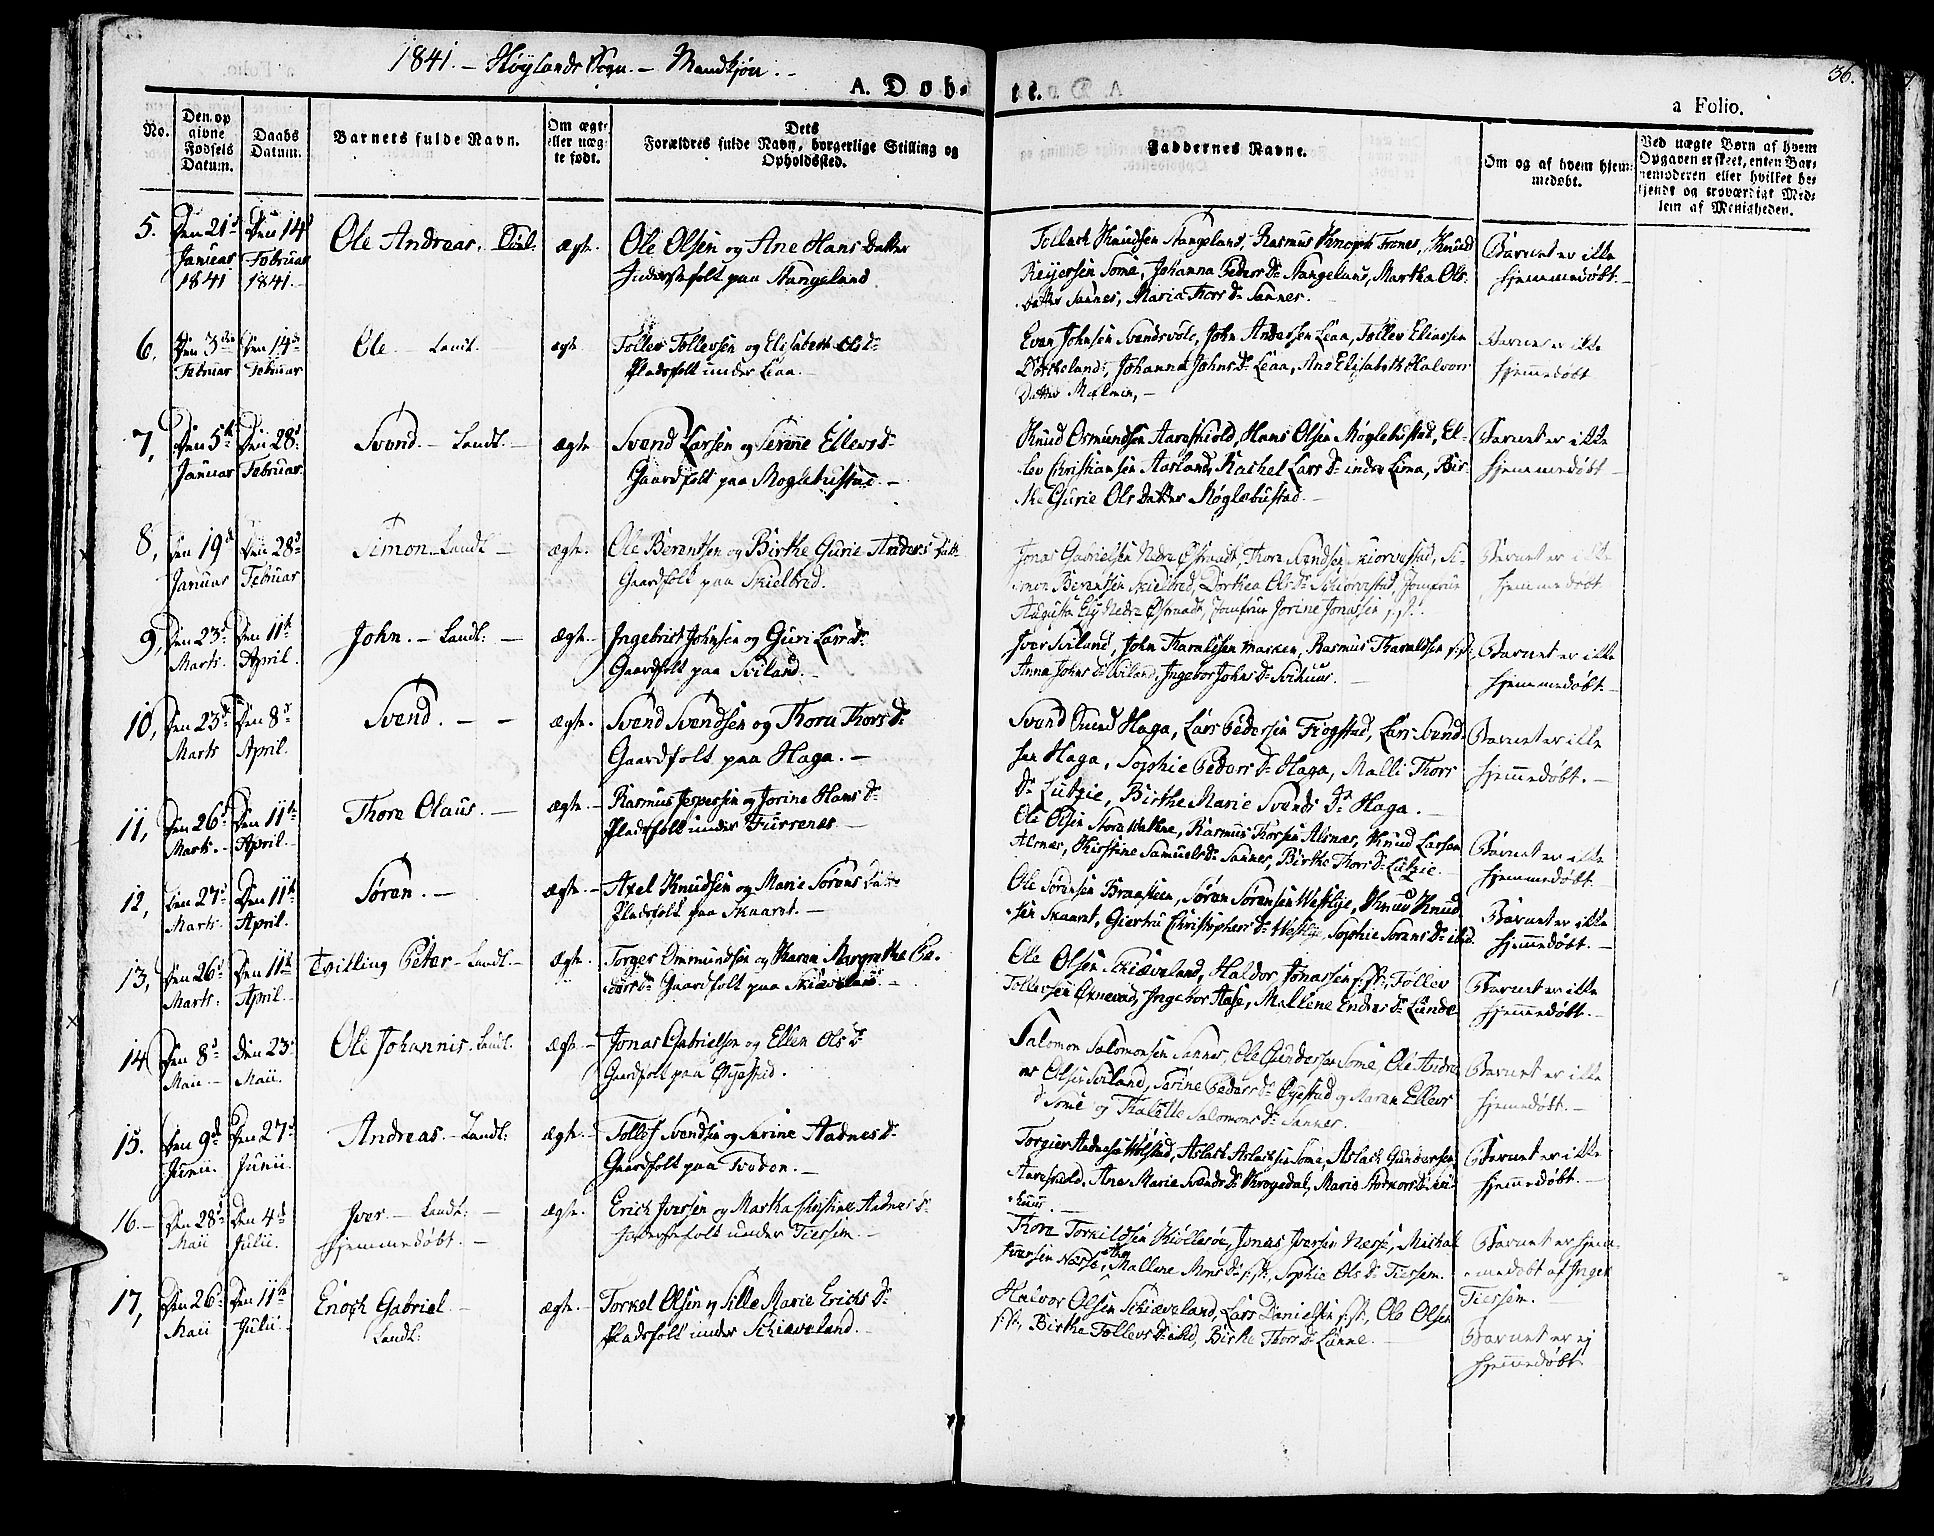 1841. – Høylands Sogn. – Mandkjøn. –
36.
A. Døbte.
a Folio.
No.
Den opgivne Fødsels Datum.
Daabs Datum.
Barnets fulde Navn.
Om ægte eller uægte født.
Dets Forældres fulde Navn, borgerlige Stilling og Opholdssted.
Faddernes Navne.
Om og af hvem hjemmedøbt.
Ved uægte Børn af hvem Opgaven er skeet, enten Barnemoderen eller hvilket bekjendt og troværdigt Medlem af Menigheden.
5. Den 21d Januar 1841 Den 14d Februar 1841. Ole Andreas. ægte.
Ole Olsen og Ane Hans Datter
Inderstefolk paa Stangeland
Tollack Knudsen Stangeland, Rasmus Frones, Knud
Reijersen Some, Johanna Peders Dr Stangeland, Martha Ols
Datter Sannes, Maria Thors Dr Sannes.
Barnet er ikke
hjemmedøbt. –
6. Den 3die Februar Den 14de Februar Ole Landl. ægte
Tollev Tollevsen og Elisabeth Ols Dr
Pladsfolk under Lea. –
Even Johnsen Svendsvold, John Andersen Leaa, Tollev Eliassen
Johanna Johns Dr Leaa, Ane Elisabeth Halvors
Datter Malmin, –
Barnet er ikke
hjemmedøbt
7, Den 5te Januar Den 28d Februar Svend. – Landl. – ægte
Svend Larsen og Serine Ellevs Dr
Gaardfolk paa Moglebustad –
Knud Osmundsen Aareskiold, Hans Olsen Møglebustad, El-
lev Christiansen Aasland, Rachel Lars Dr inden Lima, Bir-
the Gurie Ols Datter Møglebustad. –
Barnet er ikke
hjemmedøbt –
8, Den 19d Januar Den 28d Februar Simon – Landl – ægte.
Ole Berentsen og Birthe Gurie Anders Datt
Gaardfolk paa Skielbred.
Jonas Gabrielsen Nedre Østraadt, Thore Svendsen Skiørvestad, Si-
mon Berentsen Skielbred, Dorthea Ols Dr Skiørvestad, Jomfrue
Augusta Ely Nedre Østraadt, Jomfrue Jorine Jonassen
Barnet er ikke
hjemmedøbt
9, Den 23d Marts. Den 11te April. John. – Landl: – ægte –
Ingebrict Johnsen og Guri Lars Dr
Gaardfolk paa Sviland. –
Iver Sviland, John Tharaldsen Marken, Rasmus Tharaldsen s:st:
Anna Johns Dr Sviland, Ingebor Johns Dr Svihuus. –
Barnet er ikke
hjemmedøbt –
10, Den 23d Marts Den 8d April. Svend. – – ægte.
Svend Svendsen og Thora Thors Dr
Gaardfolk paa Haga. –
Svend Haga, Lars Pedersen Frogstad, Lars Svend-
sen Haga, Sophie Peders Dr Haga, Malli Thors
Dr Lutzie, Birthe Marie Svends Dr Haga.
Barnet er ikke
hjemmedøbt. –
11, Den 26d Marts. – Den 11te April. – Thore Olaus. – ægte –
Rasmus Jespersen og Jorine Hans Dr
Pladsfolk under Furrenes –
Ole Olsen Store Wathne, Rasmus Thorsen Alsnæs, Knud Larsen
Alsnæs, Kirstine Samuels Dr Sannes, Birthe Thors Dr Lutzie.
Barnet er ikke
hjemmedøbt.
12, Den 27d Marts. Den 11te April. Søren. – ægte –
Axel Knudsen og Marie Sørens Datter
Pladsfolk paa Skaaret. –
Ole Sørensen Braasteen, Søren Sørensen Westlye, Knud Knud-
sen Skaaret, Giertru Christophers Dr Westlye, Sophie Sorens Dr ibid.
Barnet er ikke
hjemmedøbt. –
13, Den 26d Marts. Den 11te April. – Tvilling Peter – Landl. – ægte.
Torger Ommundsen og Karen Margrethe Pe-
ders Dr Gaardfolk paa Skiæveland. –
Ole Olsen Schiæveland, Haldor Jonassen s:st:, Tollev
Tollevsen Øxnevad, Ingebor Aase, Mallene Endres Dr Lunde
Barnet er ikke
hjemmedøbt. –
14 Den 8d Maii – Den 23d Maii. Ole Johannis. Landl. ægte –
Jonas Gabrielsen og Ellen Ols Dr
Gaardfolk paa Øyestad.
Salomon Salomonsen Sannes, Ole Gundersen Some, Ole Andre-
as Olsen Sviland, Serine Peders Dr Øyestad og Maren Ellevs
d Some og Thalette Salomons Dr Sannes.
Barnet er ikke
hjemmedøbt. –
15. Den 9d Junii. Den 27d Junii. Andreas. – Landl: ægte.
Tollef Svendsen og Serine Aadnes Dr
Gaardfolk paa Tvedon. –
Torgier Aadnesen Wølstad, Aslach Aslachsen Some, Aslach Gundersen
Aareskiold, Ane Marie Svends Dr Krogedal, Marie
Barnet er ikke
hjemmedøbt. –
16. – Den 28d Maii Den 4d Julii. Iver – Landl: – ægte.
hjemmedøbt. –
Erich Iversen og Martha Christine Aadnes D.
Inderstefolk under Tiessem. –
Thore Torkildsen Kiøllesøe, Jonas Iversen Næsse, Michal
Iversen Næsse, Mallene Mons Dr s:st:, Sophie Ols Dr Tiessem.
Barnet er hjem-
medøbt af Inger
Tiessem. –
17, Den 26d Maii Den 11te Julii Enoch Gabriel –
Landl: ægte. –
Torkel Olsen og Sille Marie Erichs Dr
Pladsfolk under Schiæveland. –
Halvor Olsen Schiæveland, Lars Danielsen s:st:, Ole Olsen
s:st:, Birthe Tollevs Dr ibid, Birthe Thors Dr Lunne. –
Barnet er ej
hjemmedøbt